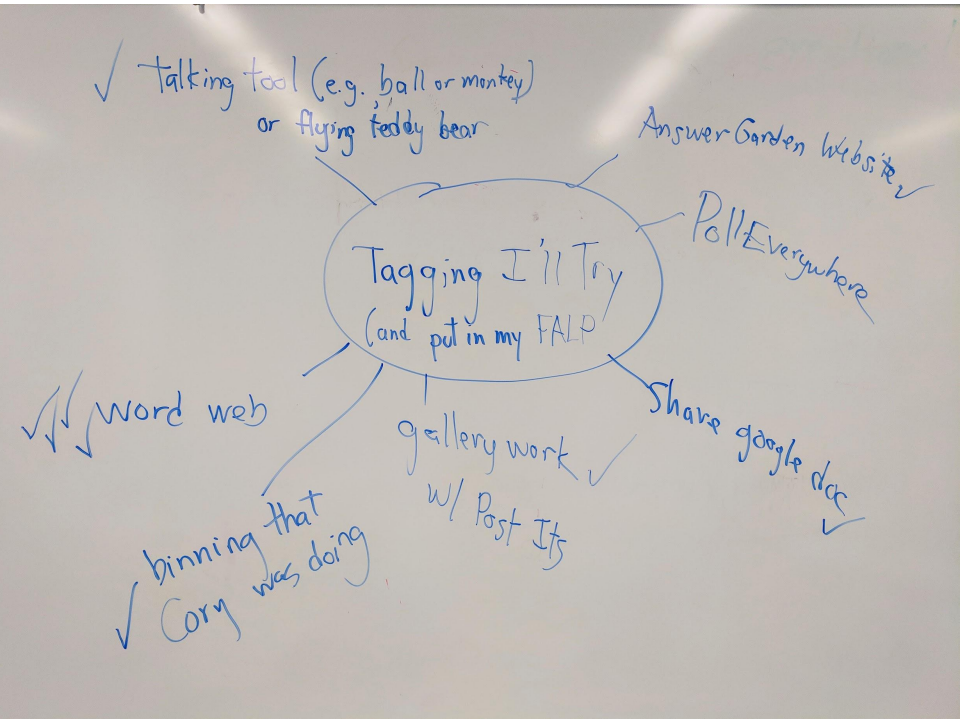 Talking tool (e.g. ball or monkey)
or flying teddy bear
AnswerGarden Website
PollEverywhere
Tagging I'll Try
(and put in my FALP
Share google doc
word web
gallery work
w/ Post Its
binning that
Cory was doing